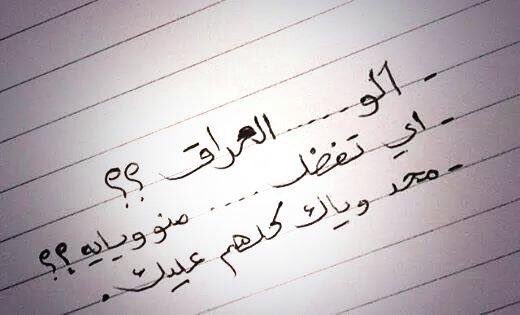 - الو ..... العراق ؟؟
- اي تفضل .... منو ويايه ؟؟
- محد وياك كلهم عليك .